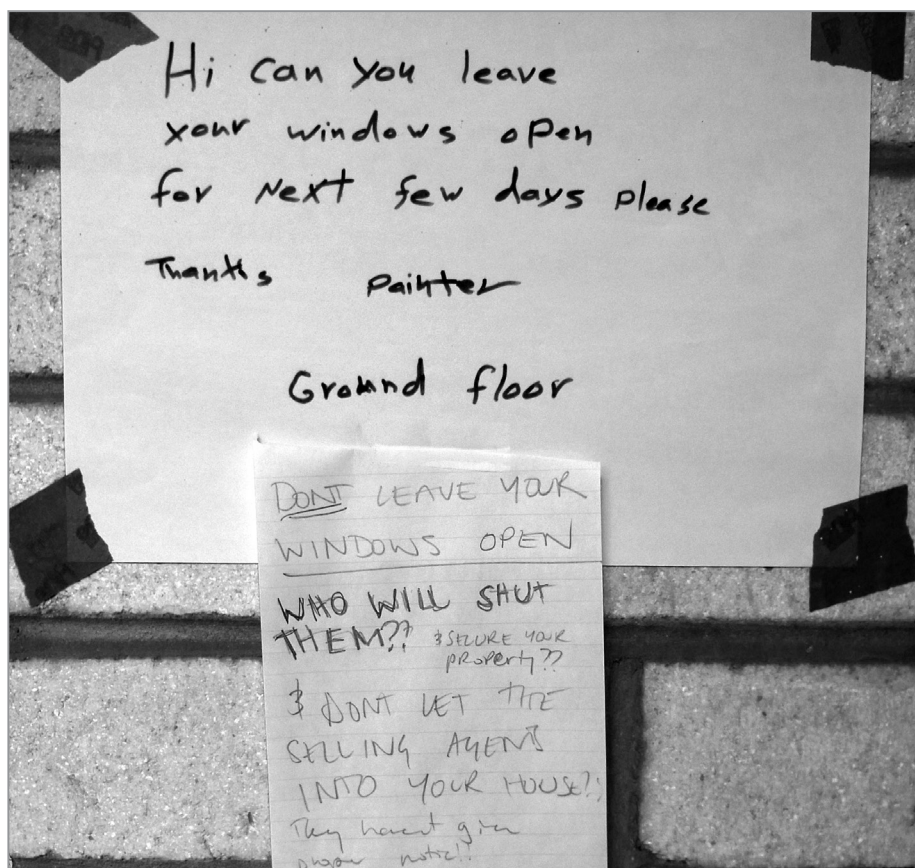 Hi can you leave
your windows open
for Next few days please
Thanks painter
Ground floor
DONT LEAVE YOUR
WINDOWS OPEN
WHO WILL SHUT
THEM?? & SECURE YOUR
property??
& DONT LET THE
SELLING AGENTS
INTO YOUR HOUSE?!
They havent given
proper notice!!